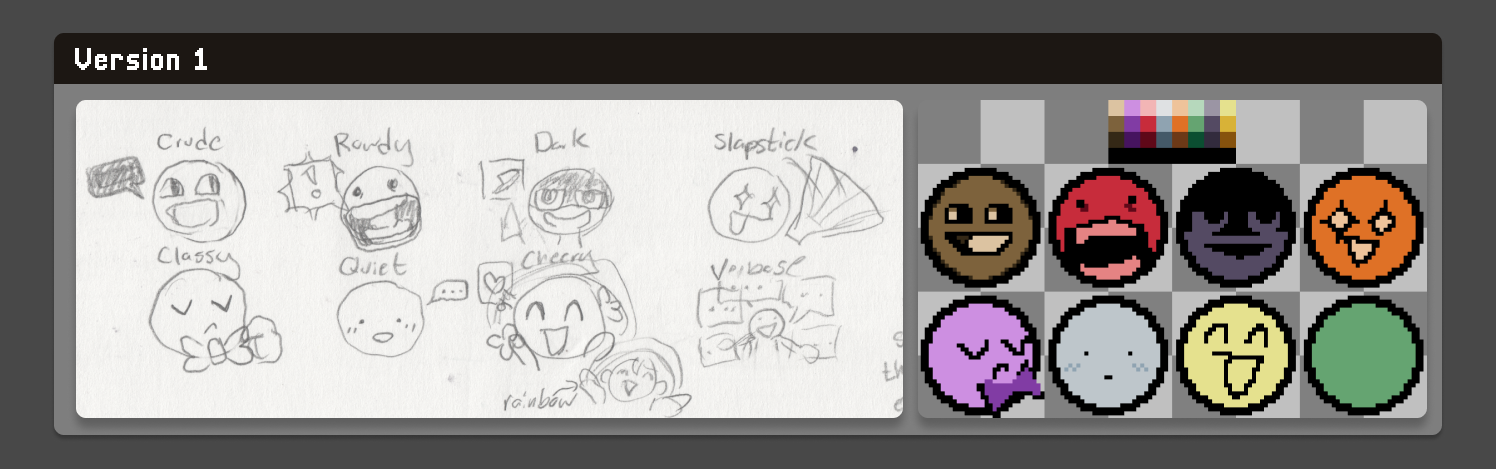 Version 1
Crude
Rowdy
Dark
Slapstick
Classy
Quiet
Cheery
Verbose
rainbow